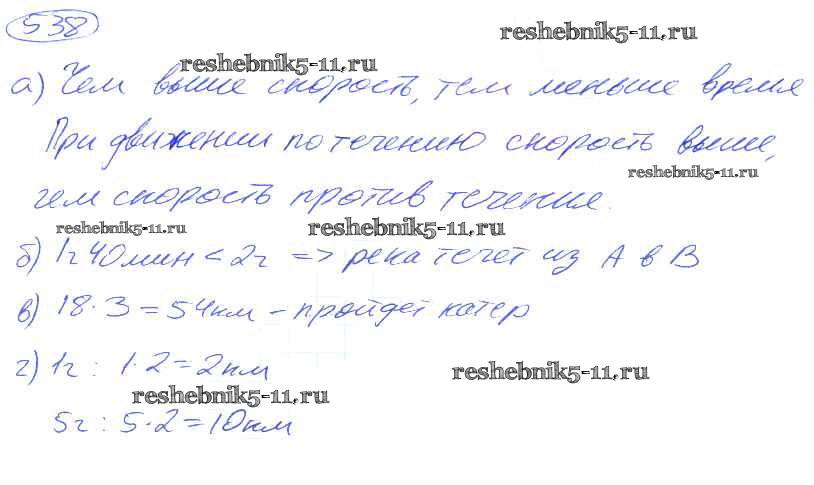 538
reshebnik5-11.ru
reshebnik5-11.ru
а) Чем выше скорость, тем меньше время
При движении по течению скорость выше,
reshebnik5-11.ru
чем скорость против течения.
reshebnik5-11.ru
reshebnik5-11.ru
б) 1ч 40мин < 2ч => река течет из А в В
в) 18·3=54км - пройдет катер
г) 1ч: 1·2=2км
reshebnik5-11.ru
reshebnik5-11.ru
5ч: 5·2=10км